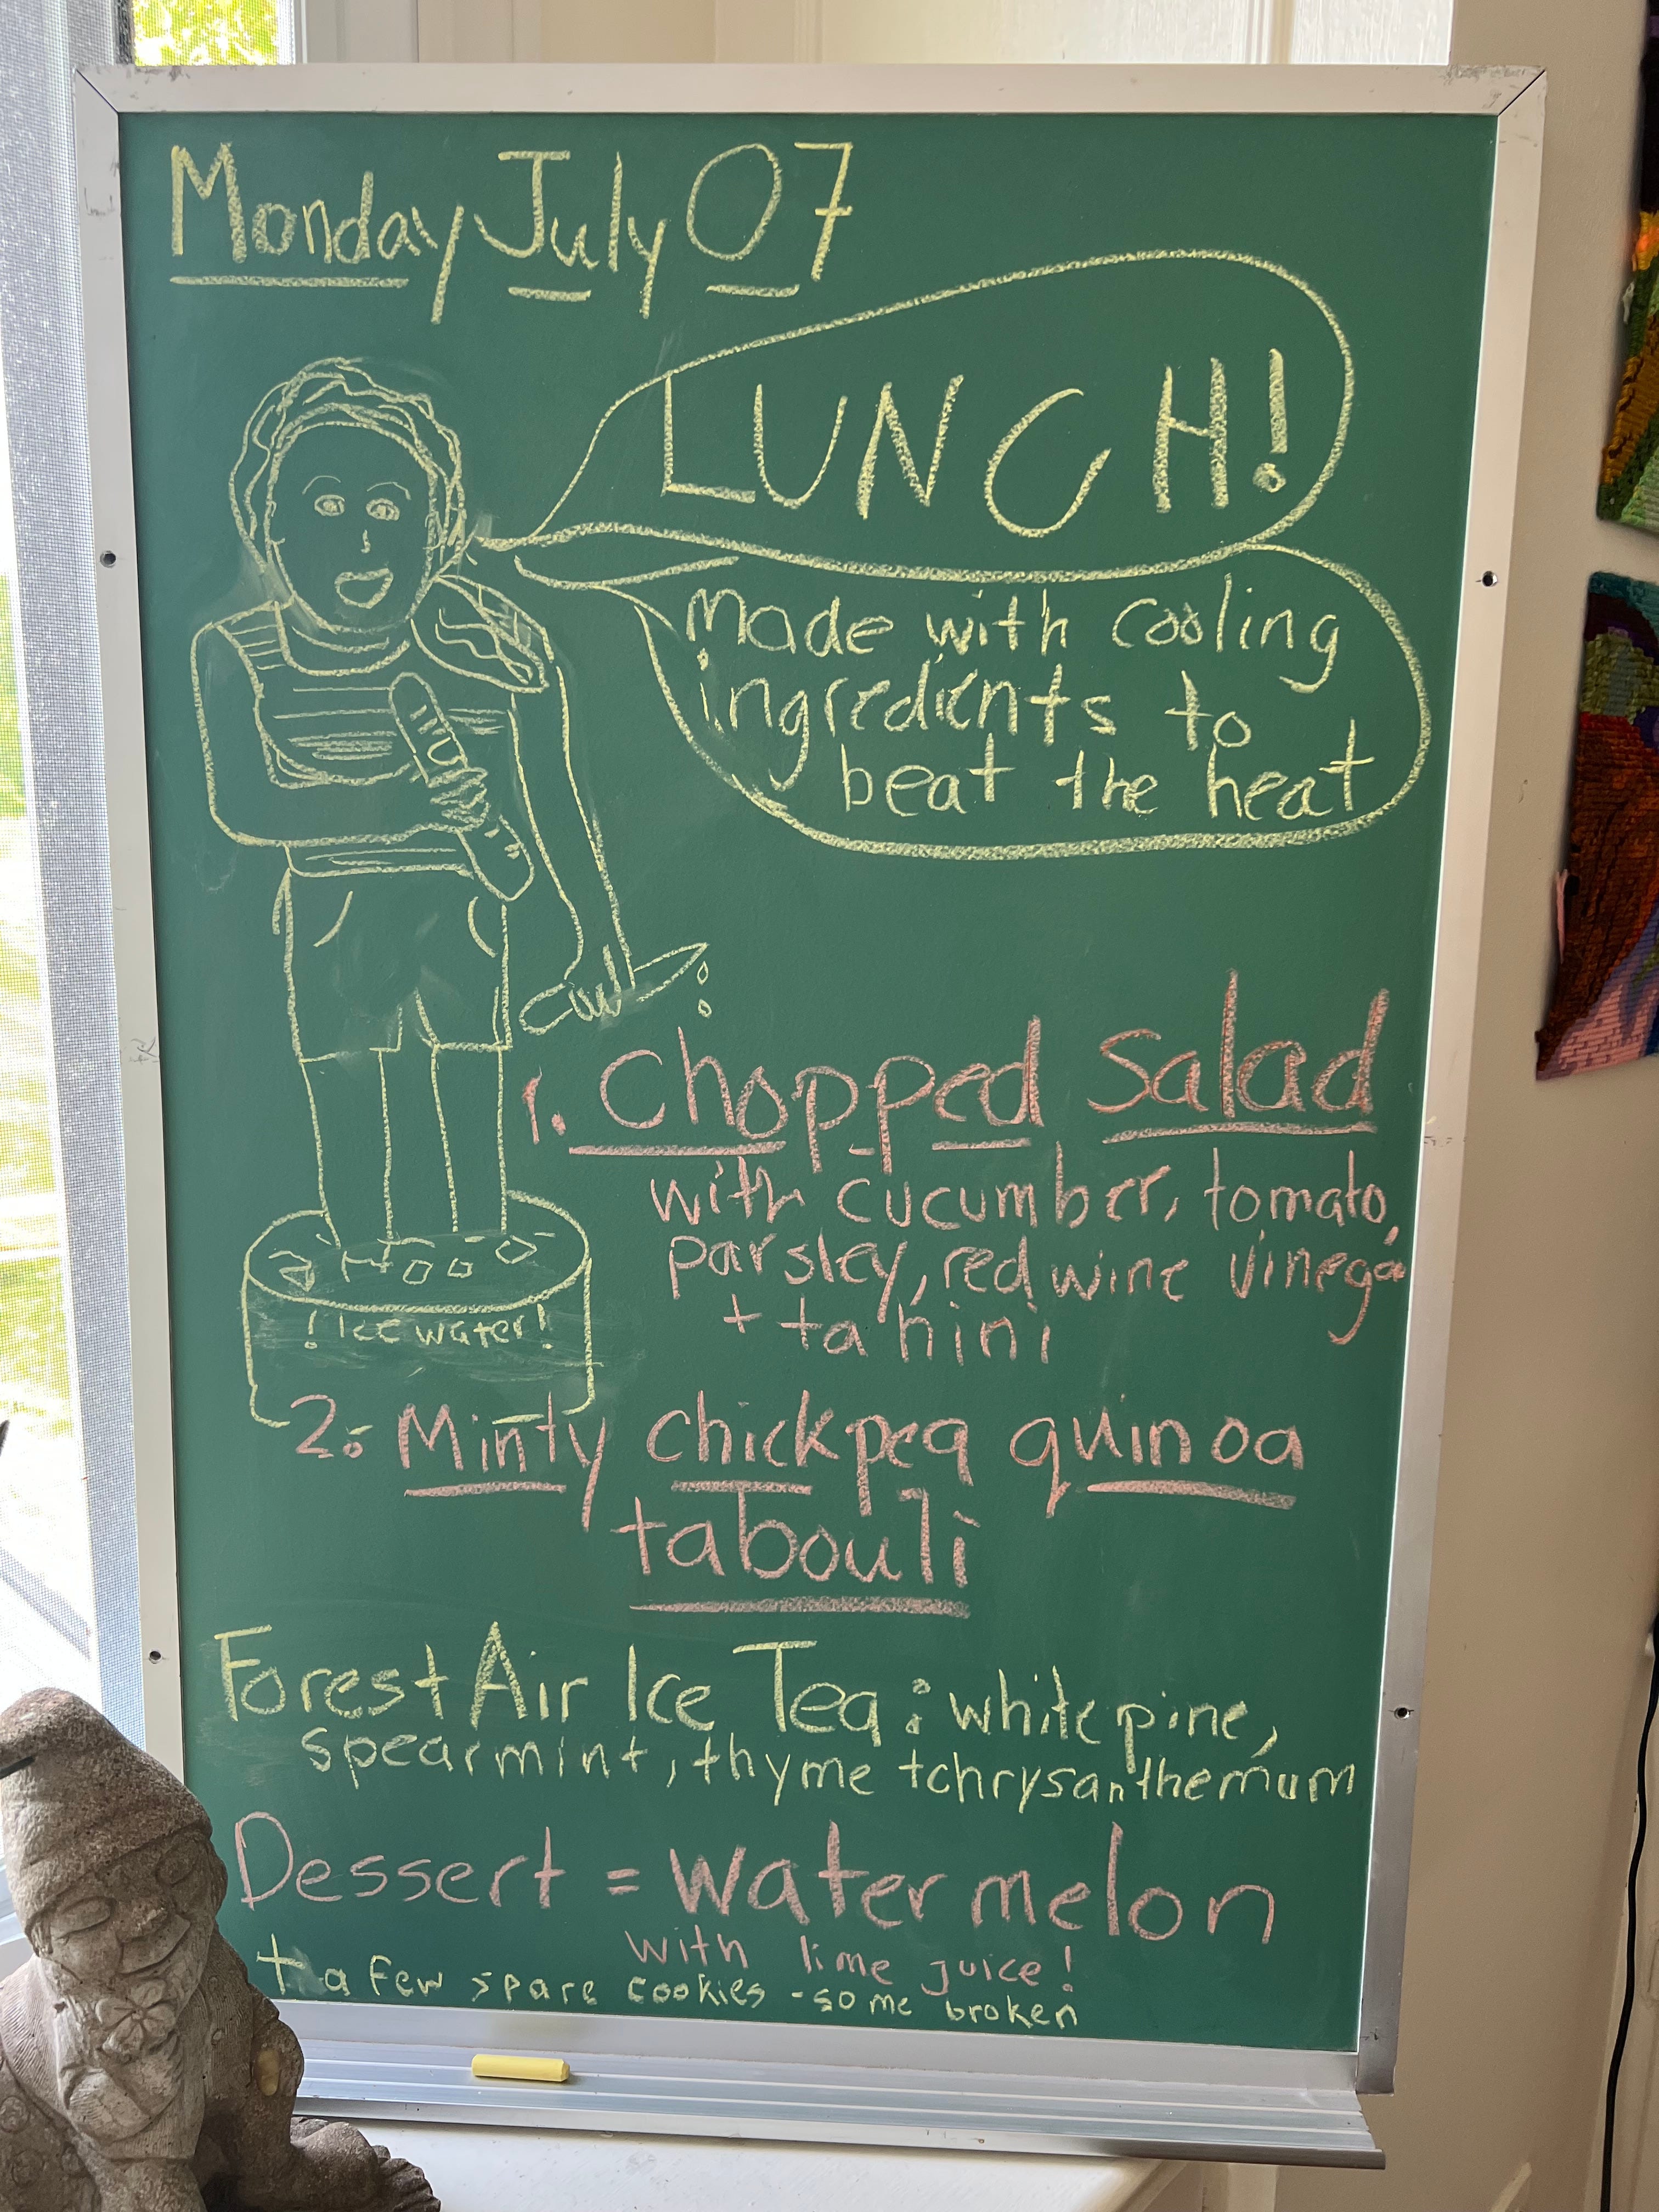 Monday July 07
LUNCH!
made with cooling
ingredients to
beat the heat
1. Chopped Salad
with cucumber, tomato,
parsley, red wine vinega
+ tahini
! Ice water!
2. Minty chickpea quinoa
tabouli
Forest Air Ice Tea: white pine,
spearmint, thyme + chrysanthemum
Dessert = watermelon
with lime juice!
+ a few spare cookies - some broken